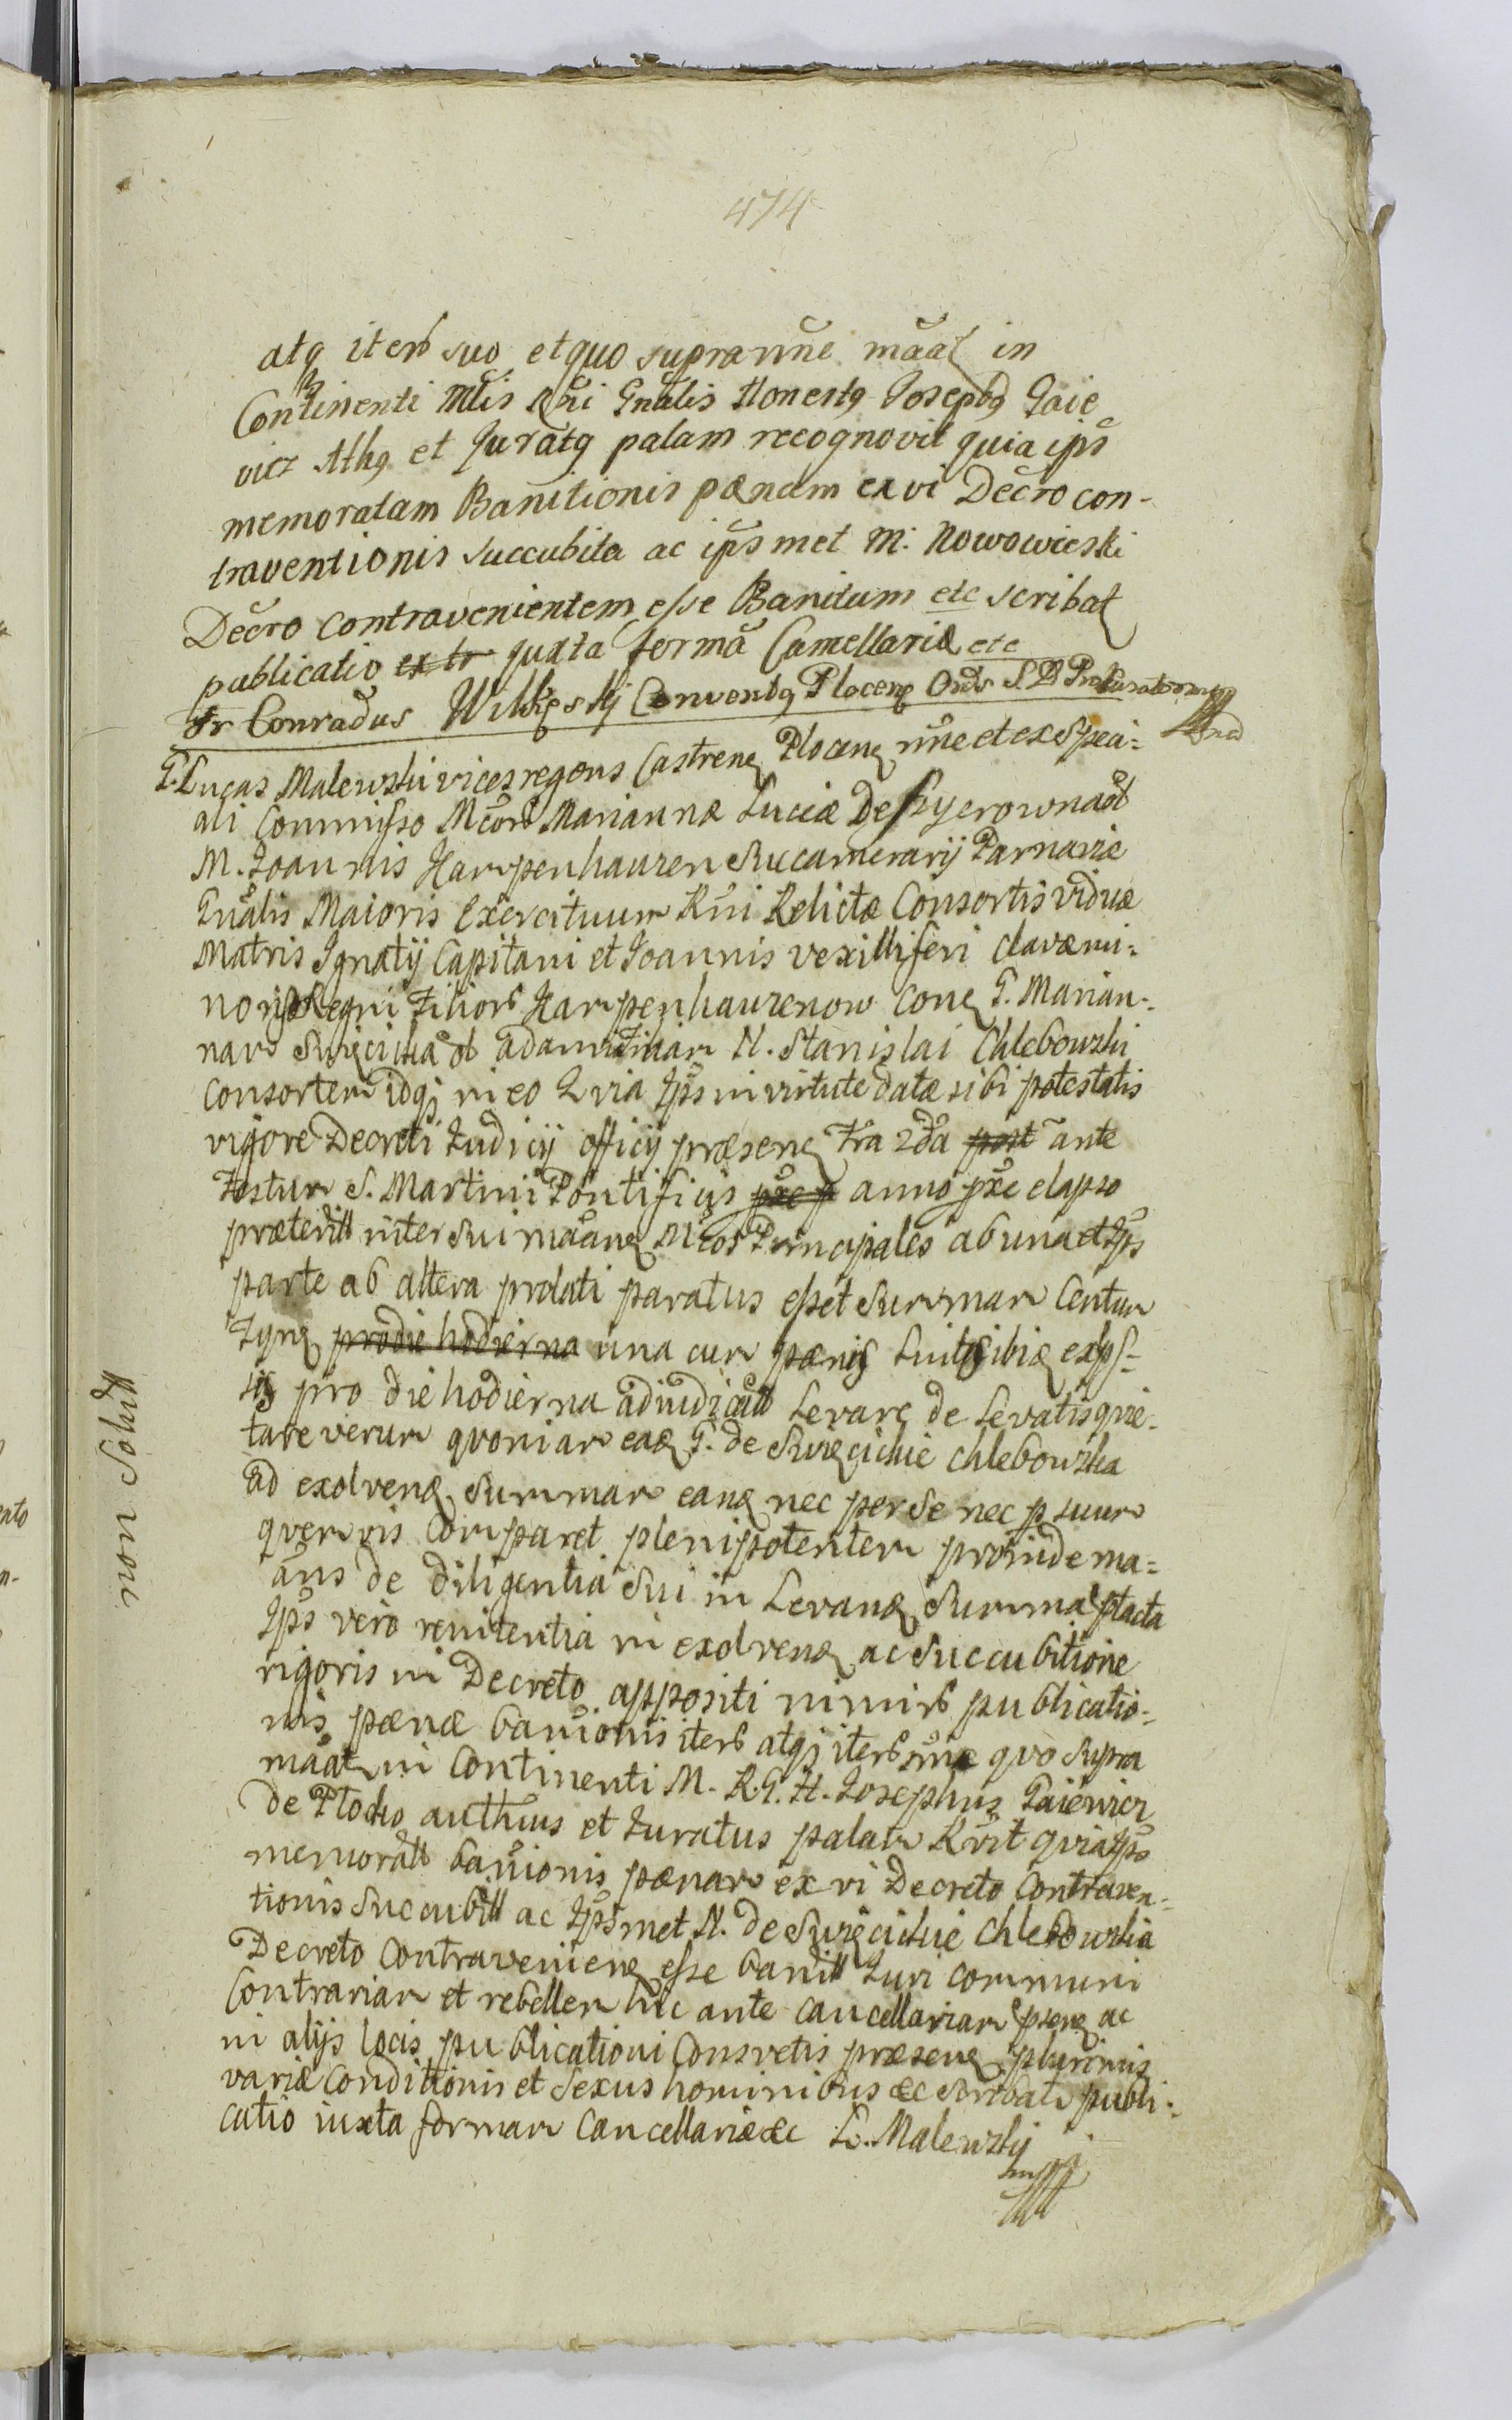 474
atq iterb suo et quo supra nn̄e māāt in
Continenti Mltis Rn̄i Gn̄alis Honestq Josephq Gaie
vicz Athq et Juratq palam recognovit quia ip̄s
memoratam Banitionis pœnam ex vi Decro con-
traventionis succubita ac ip̄smet M: Nowowieski
Decro contravenientem esse Banitum etc scribat
publicatio ex tr juxta formā Cancellariæ etc
Fr Conradus Conventq Plocenę Ords S. D Procurator mpp
G. Lucas Malewski vicesregens Castrenę Plocenę nn̄e et ex speci=
ali Commisso Mcōrb Mariannæ Luciæ De
M. Joannis Harpenhauzen Succamerarij Parnaviæ
Gn̄alis Maioris Exercituum Rn̄i Relictæ Consortis viduæ
Matris Ignatij Capitani et Joannis vexilliferi clavæ mi=
noris Regni Filiorb Harpenhauzenow conę G. Marian=
nam N. Stanislai Chlebowski
consortem idqj in eo Quia Ip̄s in virtute datæ sibi potestatis
vigore Decreti Judicij officij præsenę Fra 2da post ante
Festum S. Martini Pontificis pxe p anno pxe elapso
præteritt inter sui māānę Mcos Principales ab una et Ip̄s
parte ab altera prolati paratus esset Summam Centum
Tynę prodie hodierna una cum pœnis
pro die hodierna adiudicatt Levare de Levatis quie=
tare verum quoniam eaę G. de Święcickie Chlebowska
ad exolvenę Summam eanę nec per se nec p suum
quemvis comparet plenipotentem proinde ma=
āns de diligentia sui in Levanę Summa ptacta
Ip̄s vero renitentia in exolvenę ac succubitione
rigoris in Decreto appositi nimirb publicatio=
nis pœnæ baniōnis iterb atqj iterb nn̄e quo supra
māāt in Continenti M. R. G. H. Josephus Gaiewicz
de Plocko authus et Juratus palam Rvit quia Ip̄s
memoratt baniōnis pœnam ex vi Decreto Contraven=
tionis succubitt ac Ip̄smet N. de Święcickie Chlebowska
Decreto contravenienę esse banitt Juri communi
Contrariam et rebellem hic ante Cancellariam psenę ac
in alijs locis publicationi consvetis præsenę plurimis
variæ conditionis et sexus hominibus &c scribat publi=
catio iuxta formam Cancellariæ &c L. Malewskij
mpp
non Solutt